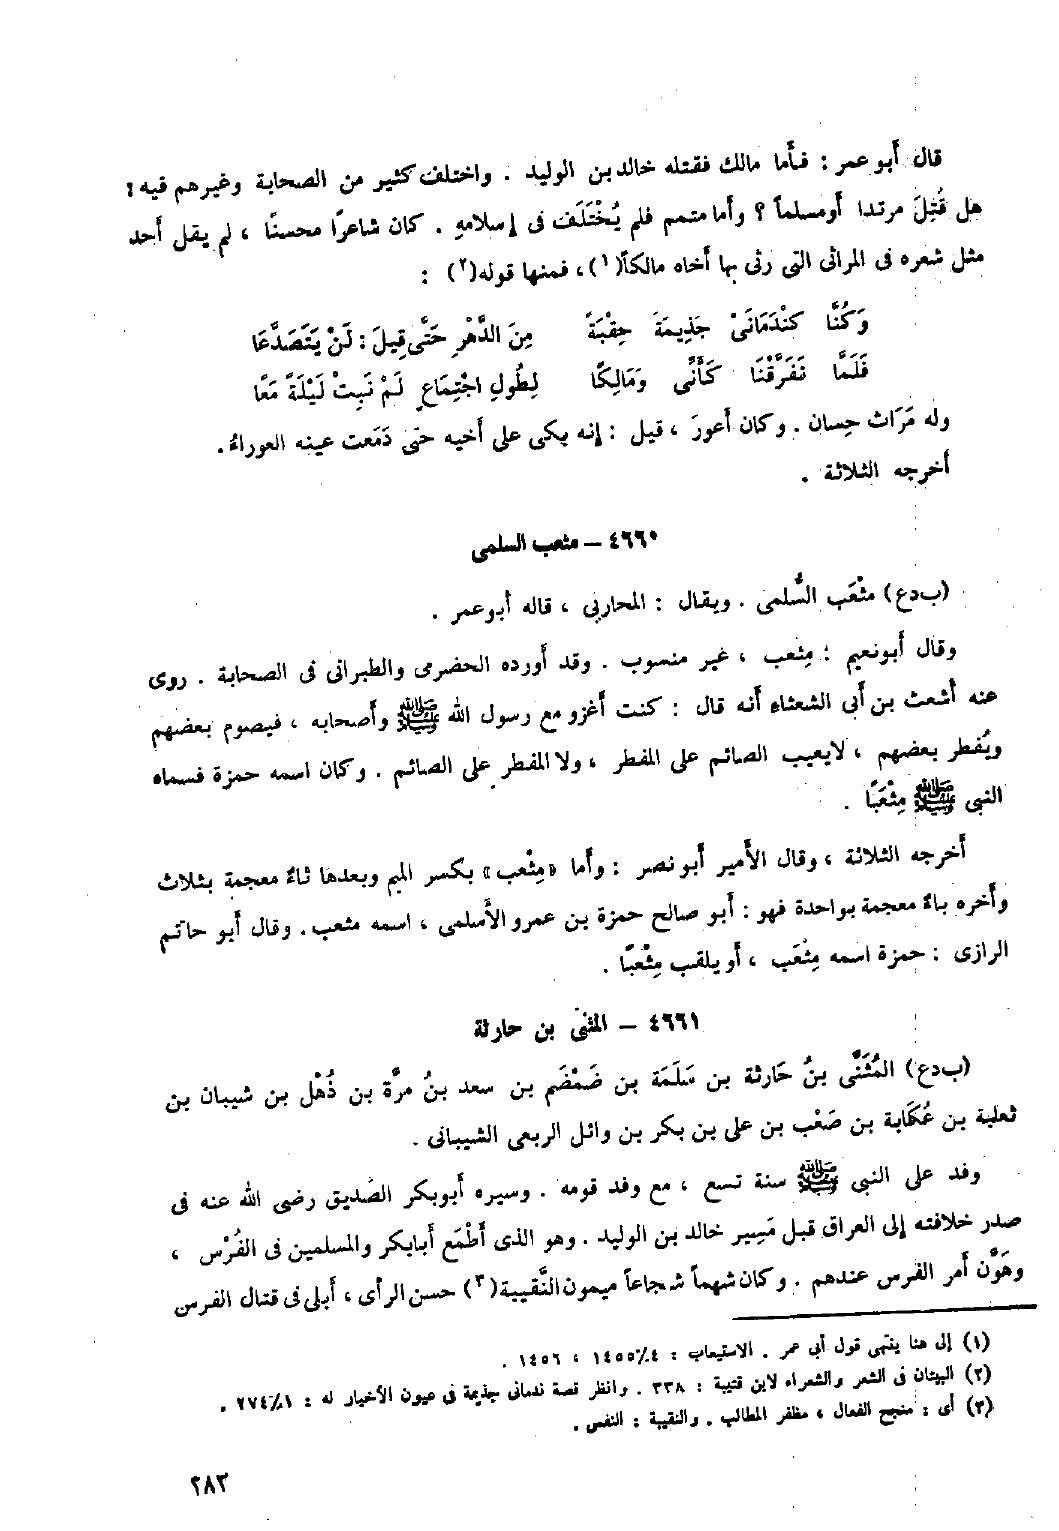 قال أبو عمر : فأما مالك فقتله خالد بن الوليد . واختلف كثير من الصحابة وغيرهم فيه :
هل قُتِلَ مرتدا أومسلماً ؟ وأما متمم فلم يُخْتَلَف فى إسلامهِ . كان شاعرًا محسنًا ، لم يقل أحد
مثل شعره فى المراثى التى رثى بها أخاه مالكاً(١) ، فمنها قوله(٢) :
وَكُنَّا كَنْدَمَانَىْ جَذِيمَةَ حِقْبَةً مِنَ الدَّهْرِ حَتَّى قِيلَ : لَنْ يَتَصَدَّعَا
فَلَمَّا تَفَرَّقْنَا كَأَنِّى وَمَالِكًا لِطُولِ اجْتِمَاعٍ لَمْ نَبِتْ لَيْلَةً مَعًا
وله مَرَاث حِسان . وكان أعورَ ، قيل : إنه بكى على أخيه حتى دَمَعت عينه العوراءُ .
أخرجه الثلاثة .
٤٦٦٠ – مثعب السلمى
(ب‌دع) مثْعَب السُّلمى . ويقال : المحاربى ، قاله أبوعمر .
وقال أبونعيم : مِثعب ، غير منسوب . وقد أورده الحضرمى والطبرانى فى الصحابة . روى
عنه أشعث بن أبى الشعثاء أنه قال : كنت أغزو مع رسول الله ﷺ وأصحابه ، فيصوم بعضهم
ويُفطر بعضهم ، لايعيب الصائم على المفطر ، ولا المفطر على الصائم . وكان اسمه حمزة فسماه
النبى ﷺ مِثْعَبًا .
أخرجه الثلاثة ، وقال الأمير أبو نصر : وأما «مِثْعب» بكسر الميم وبعدها ثاءٌ معجمة بثلاث
وأخره باءٌ معجمة بواحدة فهو : أبو صالح حمزة بن عمرو الأسلمى ، اسمه مثعب . وقال أبو حاتم
الرازى : حمزة اسمه مِثْعَب ، أو يلقب مِثْعبًا .
٤٦٦١ – المثنى بن حارثة
(ب‌دع) المُثَنَّى بنُ حَارثة بن سَلَمَة بن ضَمْضَم بن سعد بنُ مرَّة بن ذُهْل بن شيبان بن
ثعلبة بن عُكَابة بن صَعْب بن على بن بكر بن وائل الربعى الشيبانى .
وفد على النبى ﷺ سنة تسع ، مع وفد قومه . وسيره أبوبكر الصّديق رضى الله عنه فى
صدر خلافته إلى العراق قبل مَسِير خالد بن الوليد . وهو الذى أَطْمَع أبابكر والمسلمين فى الفُرْس ،
وهَوَّن أمر الفرس عندهم . وكان شهماً شجاعاً ميمون النَّقيبة(٣) حسن الرأى ، أبلى فى قتال الفرس
(١) إلى هنا ينتهى قول أبى عمر . الاستيعاب : ٤/١٤٥٥ ، ١٤٥٦ .
(٢) البيتان فى الشعر والشعراء لابن قتيبة : ٣٣٨ . وانظر قصة ندمانى جذيمة فى عيون الأخبار له : ١/٢٧٤ .
(٣) أى : منجح الفعال ، مظفر المطالب . والنقيبة : النفس .
٢٨٣